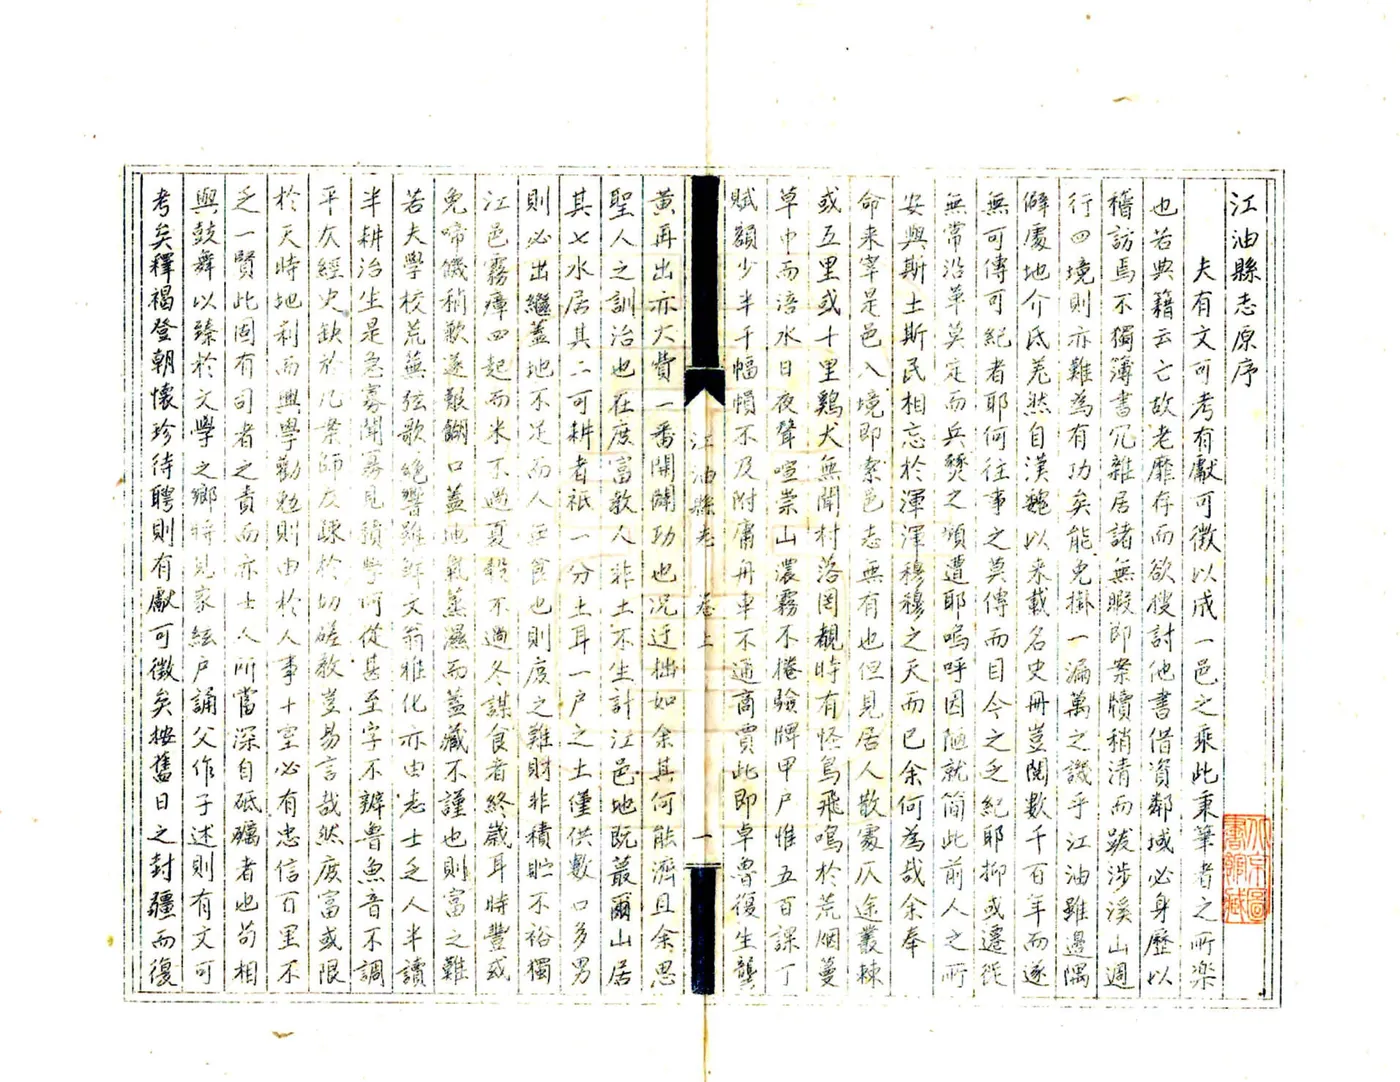 江油縣志原序
夫有文可考有獻可徵以成一邑之乘此秉筆者之所樂
也若典籍云亡故老靡存而欲搜討他書借資鄰域必身歷以
稽訪焉不獨簿書冗雜居諸無暇即案牘稍清而跋涉溪山週
行四境則亦難為有功矣能免掛一漏萬之譏乎江油雖邊隅
僻處地介氐羌然自漢魏以来載名史冊豈閱數千百年而遂
無可傳可紀者耶何往事之莫傳而目今之乏紀耶抑或遷徙
無常沿革莫定而兵燹之頃遭耶嗚呼因陋就簡此前人之所
安與斯土斯民相忘於渾渾穆穆之天而已余何為哉余奉
命来宰是邑入境即索邑志無有也但見居人散處仄途叢棘
或五里或十里鷄犬無聞村落罔覩時有怪鳥飛鳴於荒烟蔓
草中而涪水日夜聲喧崇山濃霧不捲驗牌甲戶惟五百課丁
賦額少半千幅幀不及附庸舟車不通商賈此即卓魯復生龔
江油縣志 卷上 一
黃再出亦大費一番開闢功也况迂拙如余其何能濟且余思
聖人之訓治也在庶富教人非土不生計江邑地既蕞爾山居
其七水居其二可耕者祇一分土耳一戶之土僅供數口多男
則必出繼蓋地不足而人 食也則庶之難財非積貯不裕獨
江邑霧瘴四起而米不過夏穀不過冬謀食者終歲耳時豐或
免啼饑稍歉遂艱餬口蓋地氣蒸濕而蓋藏不謹也則富之難
若夫學校荒蕪弦歌絶響雖鮮文翁雅化亦由志士乏人半讀
半耕治生是急寡聞寡見積學何從甚至字不辨魯魚音不調
平仄經史缺於几案師友疎於切磋教豈易言哉然庶富或限
於天時地利而興學勸勉則由於人事十室必有忠信百里不
乏一賢此固有司者之責而亦士人所當深自砥礪者也苟相
與鼓舞以臻於文學之鄉將見家絃戶誦父作子述則有文可
考矣釋褐登朝懷珍待聘則有獻可徵矣按舊日之封疆而復
北京圖
書館藏